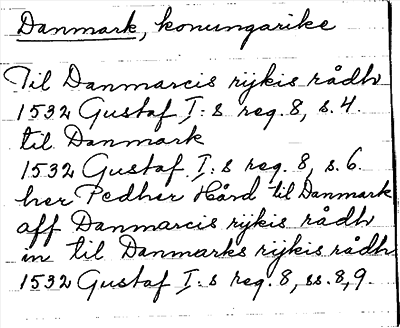 Danmark, konungarike
Til Danmarcis rijkis rådh
1532 Gustaf I:s reg. 8, s. 4.
til Danmark
1532 Gustaf I:s reg. 8, s. 6.
her Pedher Hård til Danmark
aff Danmarcis rijkis rådh
in til Danmarks rijkis rådh
1532 Gustaf I:s reg. 8, ss. 8, 9.